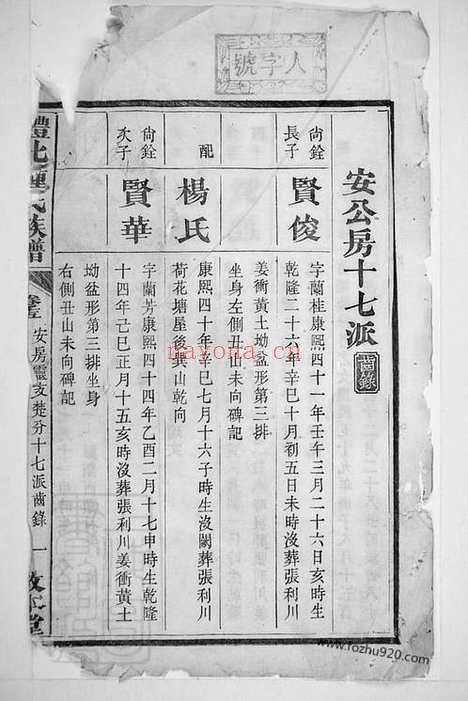 人字號
安公房十七派
齒錄
尚銓
長子
賢俊
字蘭桂康熙四十一年壬年三月二十六日亥時生
乾隆二十六年辛巳十月初五日未時沒葬張利川
姜衝黃土坳盆形第三排
坐身左側丑山未向碑記
配
楊氏
康熙四十年辛巳七月十六子時生沒闕葬張利川
荷花塘屋後巽山乾向
尚銓
次子
賢華
字蘭芳康熙四十四年乙酉二月十七申時生乾隆
十四年己巳正月十五亥時沒葬張利川姜衝黃土
坳盆形第三排坐身
右側丑山未向碑記
氏族譜
安房靈支楚分十七派齒錄
一
nayona.cn
www.fozhu920.com